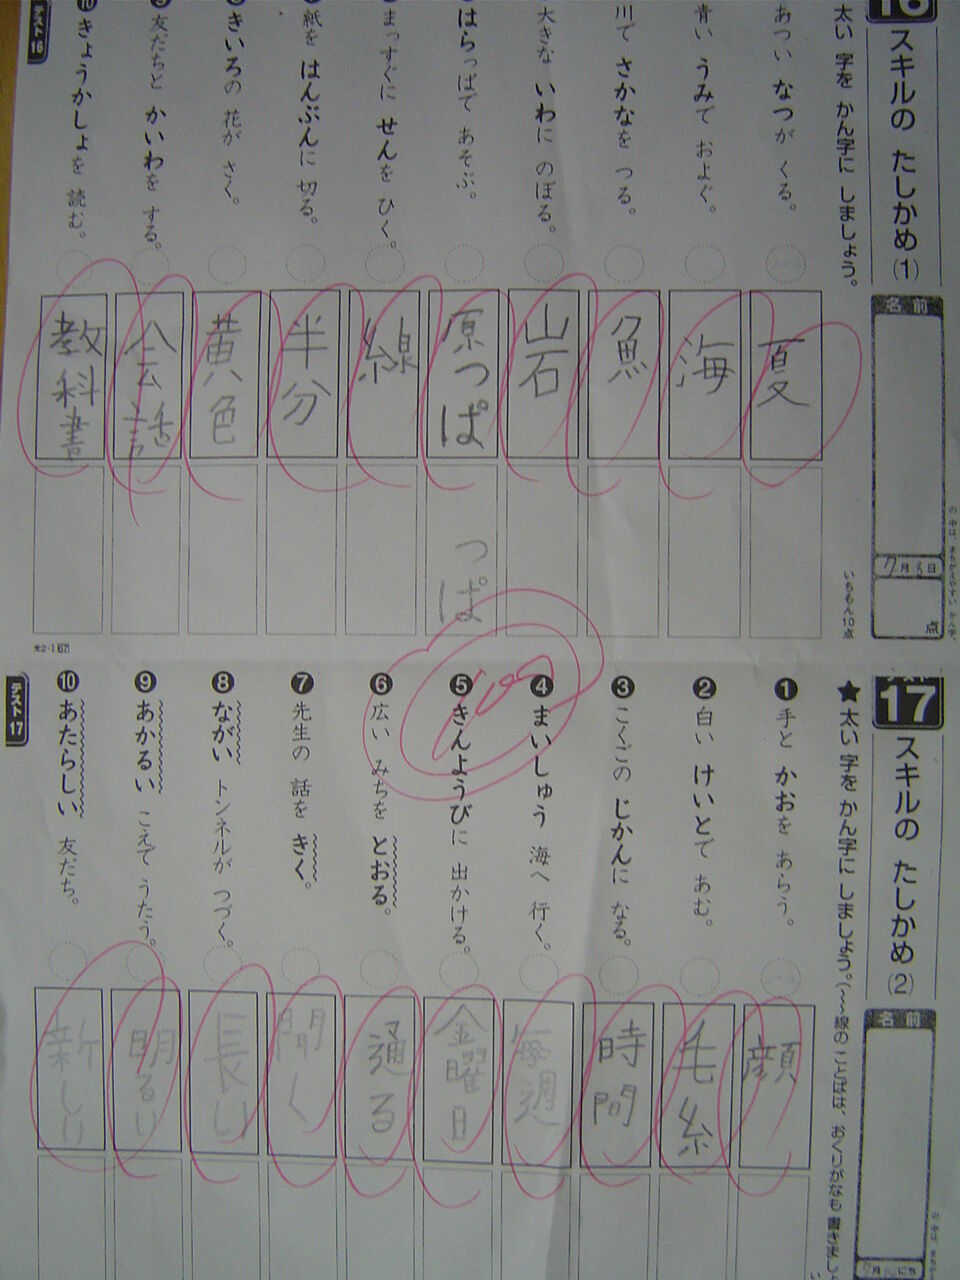 16
スキルの たしかめ(1)
太い 字を かん字に しましょう。
あつい なつが くる。
青い うみで およぐ。
川で さかなを つる。
大きな いわに のぼる。
はらっぱで あそぶ。
まっすぐに せんを ひく。
紙を はんぶんに 切る。
きいろの 花が さく。
友だちと かいわを する。
きょうかしょを 読む。
テスト16
名前
月
日
点
いちもん10点
夏
海
魚
岩
原っぱ
線
半分
黄色
会話
教科書
っぱ
100
17
スキルの たしかめ(2)
★太い 字を かん字に しましょう。(〜〜線の ことばは、おくりがなも 書きまし
❶手と かおを あらう。
❷白い けいとで あむ。
❸こくごの じかんに なる。
❹まいしゅう 海へ 行く。
❺きんようびに 出かける。
❻広い みちを とおる。
❼先生の 話を きく。
❽ながい トンネルが つづく。
❾あかるい こえで うたう。
❿あたらしい 友だち。
テスト17
名前
顔
毛糸
時間
毎週
金曜日
通る
聞く
長い
明るい
新しい